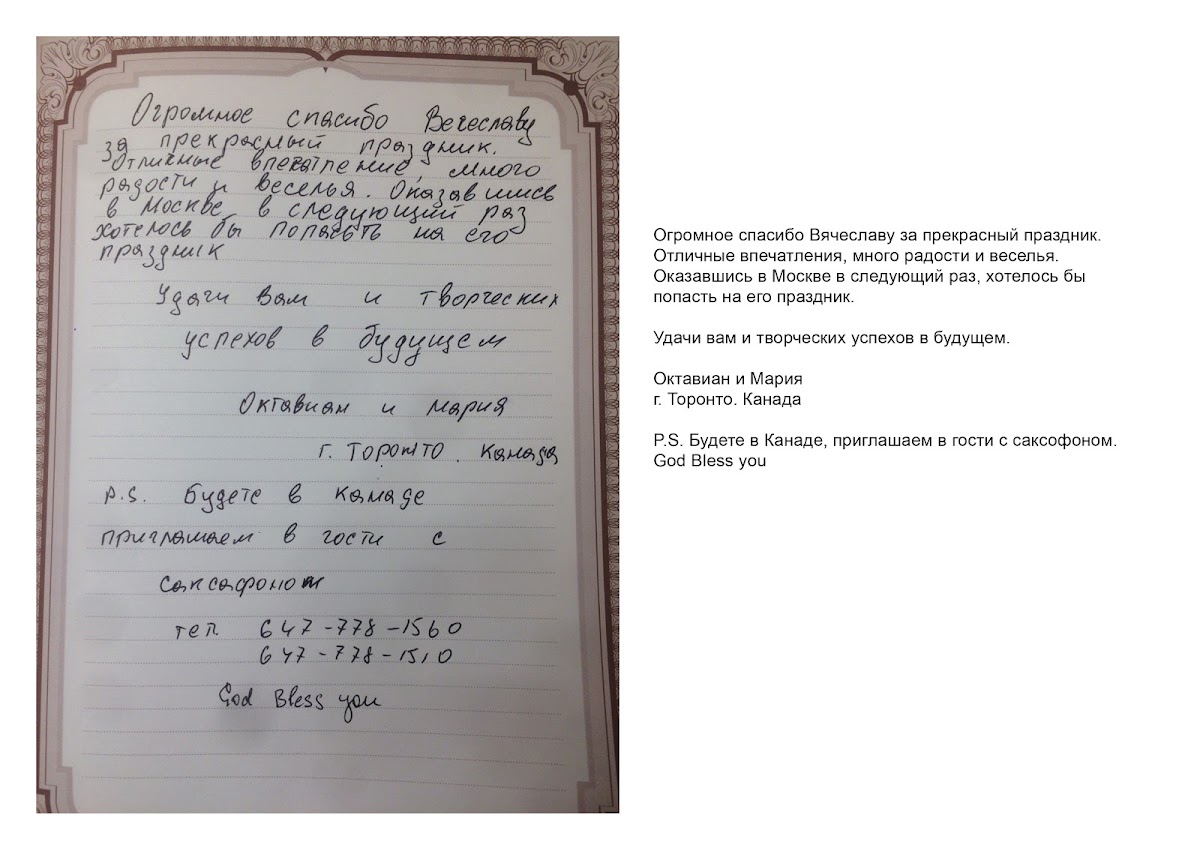 Огромное спасибо Вечеславу
за прекрасный праздник.
Отличные впечатление, много
радости и веселья. Оказавшись
в Москве в следующий раз
хотелось бы попасть на его
праздник
Удачи вам и творческих
успехов в будущем
Октавиан и Мария
г. Торонто. Канада
P.S. Будете в Канаде
приглашаем в гости с
саксафоном
тел. 647-778-1560
647-778-1510
God Bless you
Огромное спасибо Вячеславу за прекрасный праздник.
Отличные впечатления, много радости и веселья.
Оказавшись в Москве в следующий раз, хотелось бы
попасть на его праздник.
Удачи вам и творческих успехов в будущем.
Октавиан и Мария
г. Торонто. Канада
P.S. Будете в Канаде, приглашаем в гости с саксофоном.
God Bless you